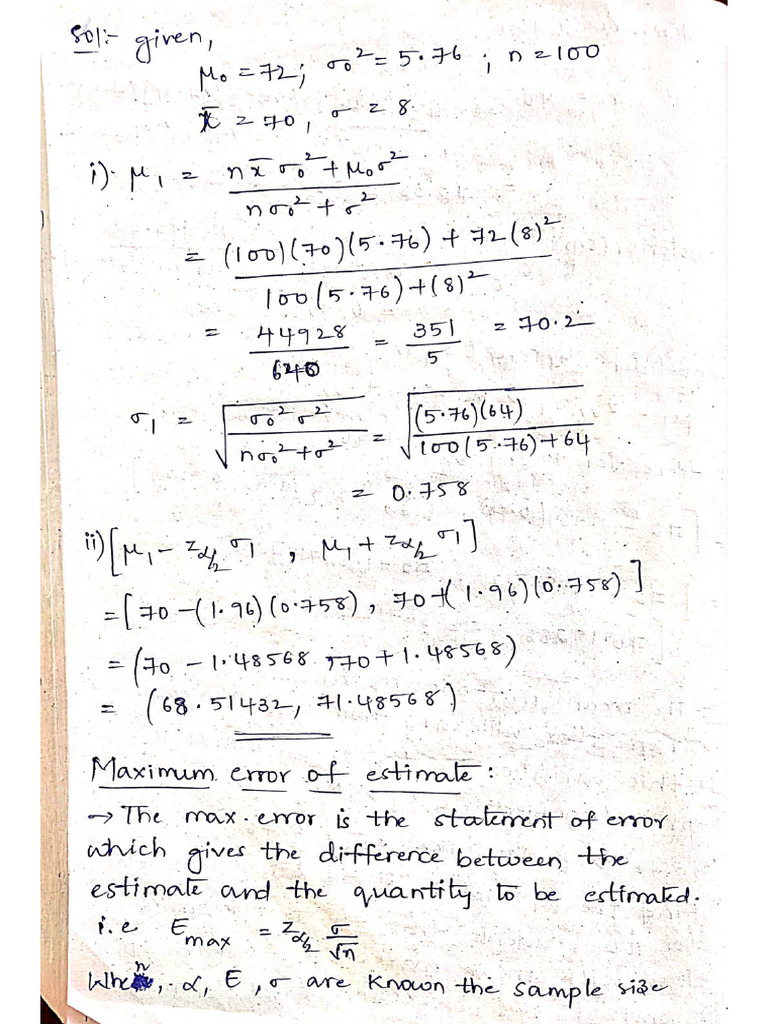 Sol:- given,
μ₀ = 72; σ₀² = 5.76 ; n = 100
x̄ = 70, σ = 8
i). μ₁ = (n x̄ σ₀² + μ₀σ²) / (nσ₀² + σ²)
= ((100)(70)(5.76) + 72(8)²) / (100(5.76) + (8)²)
= 44928 / 640 = 351 / 5 = 70.2
σ₁ = √(σ₀² σ² / (nσ₀² + σ²)) = √((5.76)(64) / (100(5.76) + 64))
= 0.758
ii) [μ₁ - z_α/2 σ₁ , μ₁ + z_α/2 σ₁]
= [70 - (1.96)(0.758), 70 + (1.96)(0.758)]
= (70 - 1.48568, 70 + 1.48568)
= (68.51432, 71.48568)
Maximum error of estimate:
→ The max. error is the statement of error
which gives the difference between the
estimate and the quantity to be estimated.
i.e E_max = z_α/2 σ/√n
When, α, E, σ are known the sample size